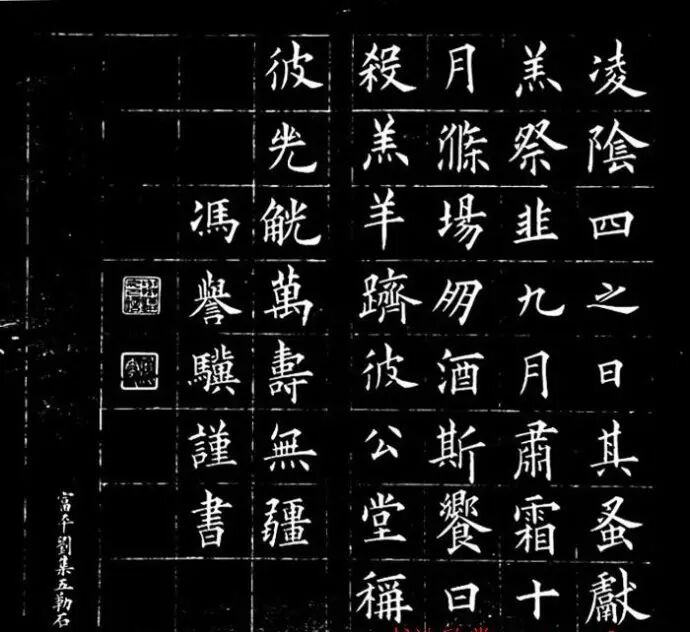 凌陰四之日其蚤獻
羔祭韭九月肅霜十
月滌場朋酒斯饗曰
殺羔羊躋彼公堂稱
彼兕觥萬壽無疆
馮譽驥謹書
富平劉集五勒石